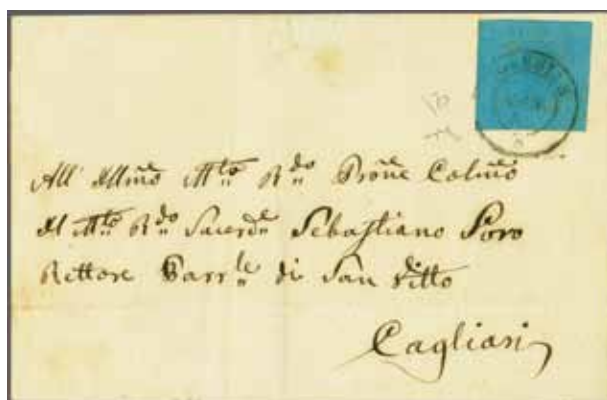 All' Illmo Mto Rdo Prone Colmo
Il Mto Rdo Sacerde Sebastiano Poro
Rettore Parrle di San Vitto
Cagliari